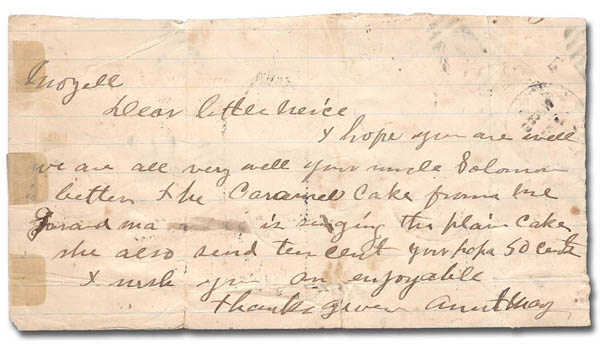 Mozell
Dear little neice
I hope you are well
we are all very well your uncle Solomon
better the Caramel Cake from me
Grandma is the plain Cake
she also send ten cent your popa 50 cents
I wish you an enjoyable
thanks given Aunt May